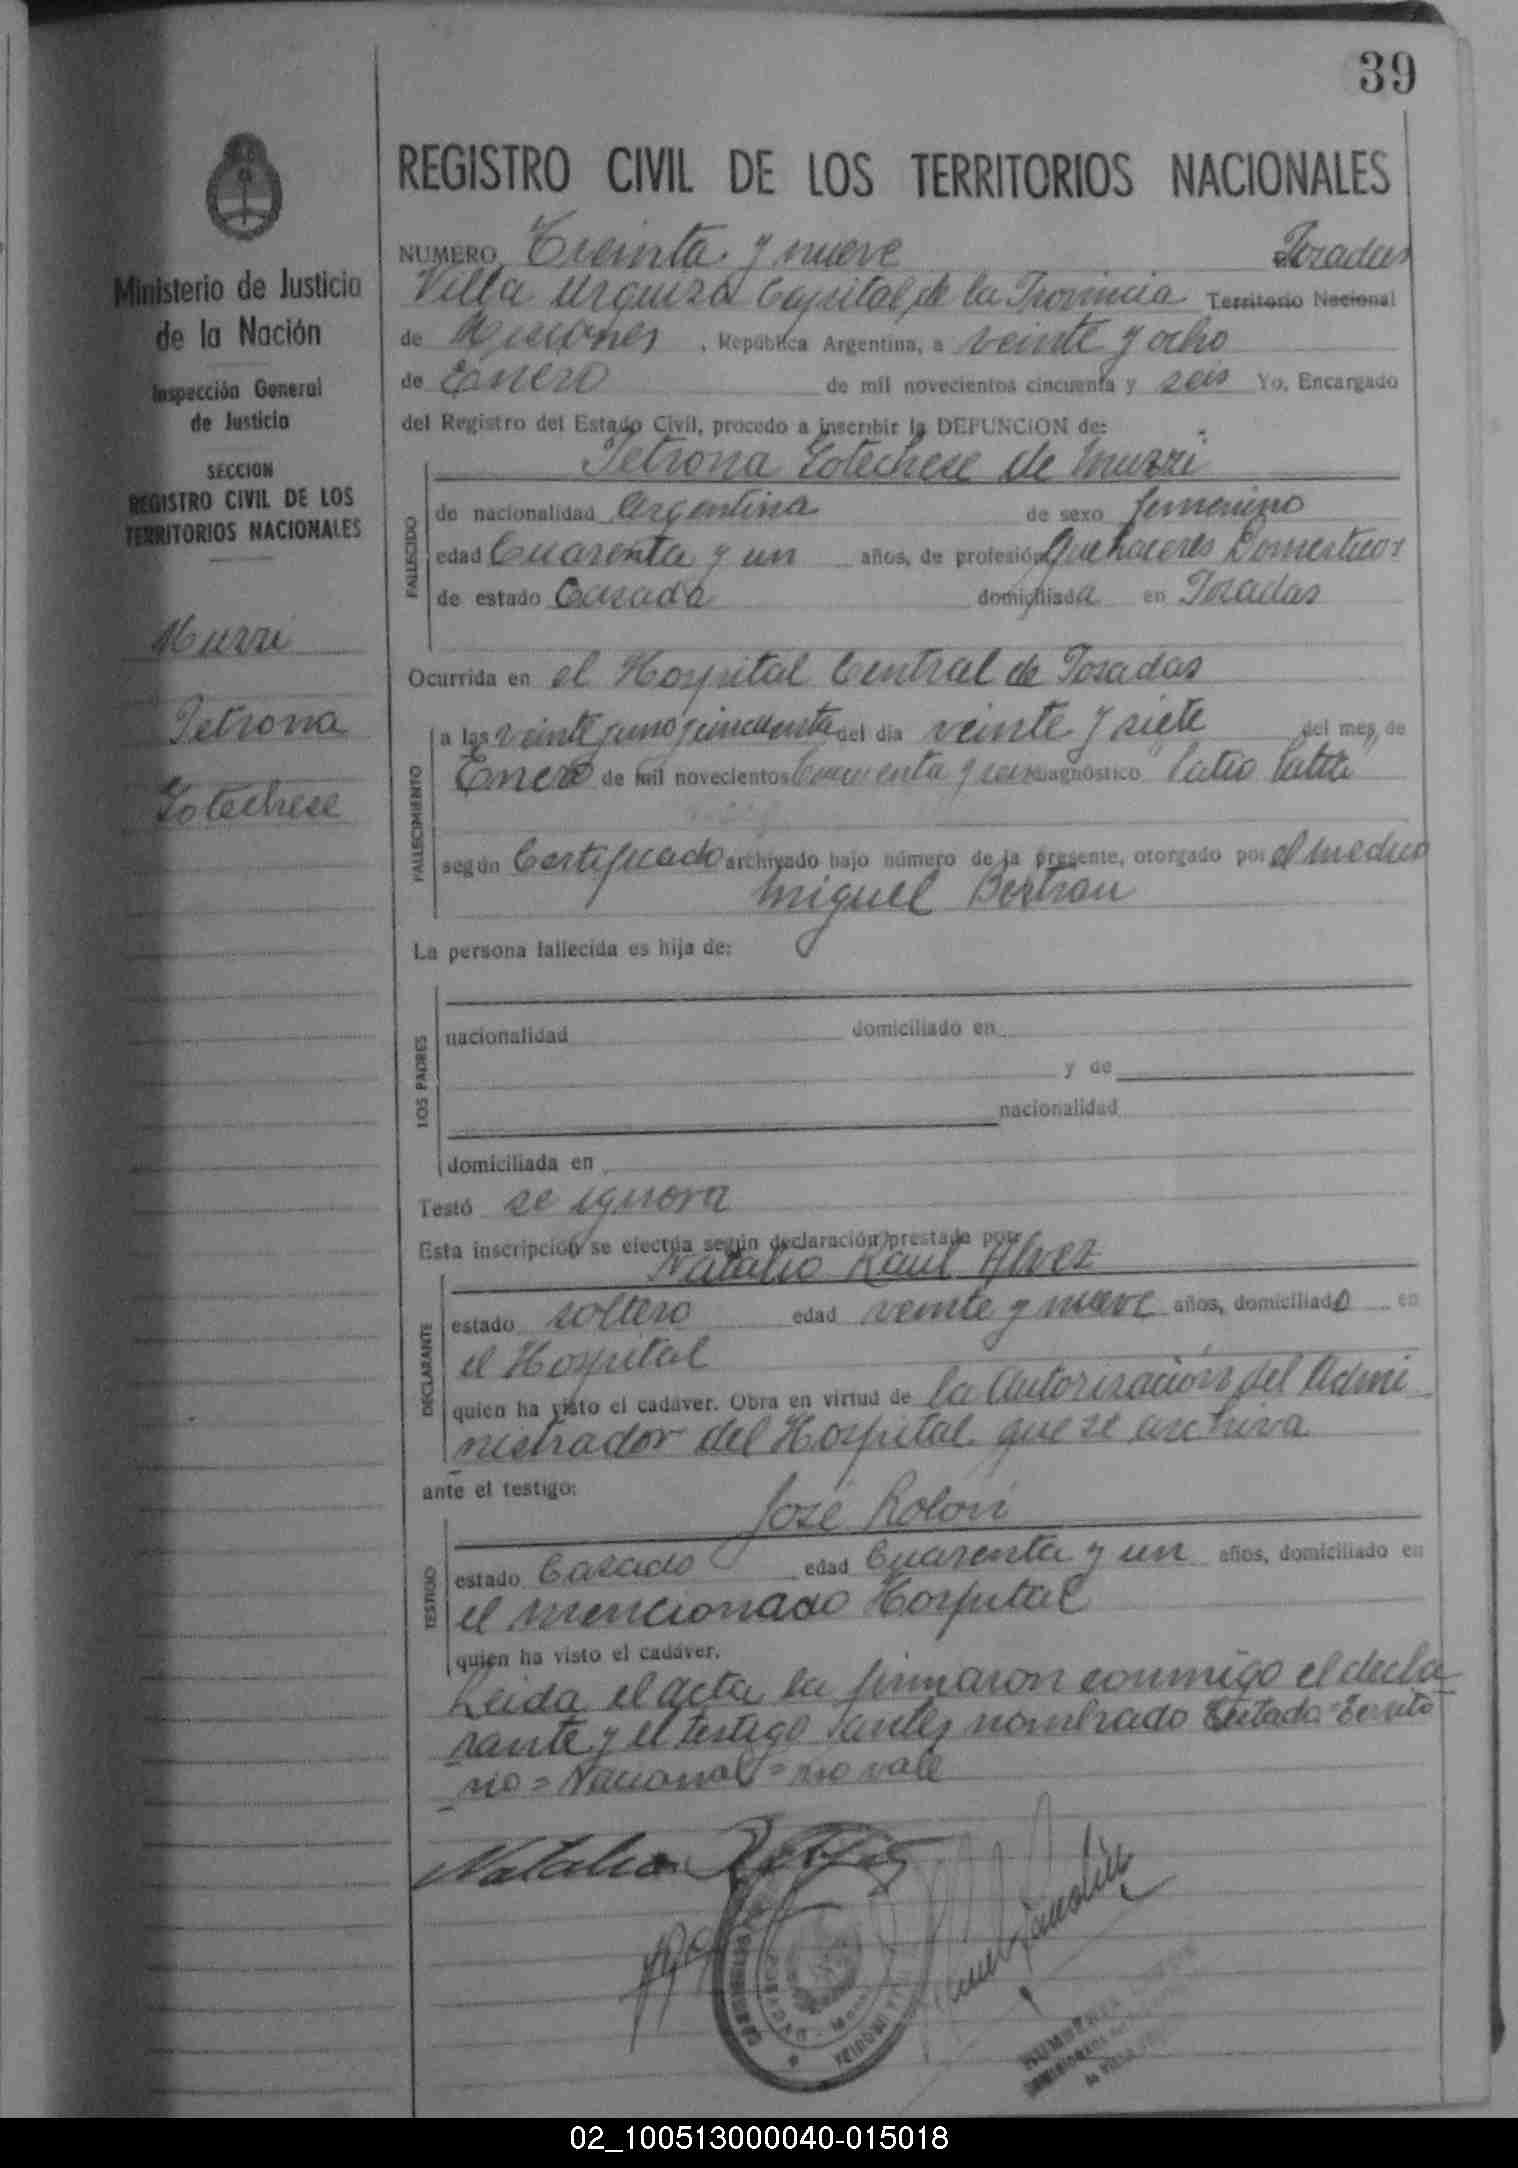 39
REGISTRO CIVIL DE LOS TERRITORIOS NACIONALES
Ministerio de Justicia
de la Nación
Inspección General
de Justicia
SECCION
REGISTRO CIVIL DE LOS
TERRITORIOS NACIONALES
Murri
Petrona
NUMERO Treinta y nueve Posadas
Villa Urquiza Capital de la Provincia Territorio Nacional
de Misiones , República Argentina, a veinte y ocho
de Enero de mil novecientos cincuenta y seis Yo, Encargado
del Registro del Estado Civil, procedo a inscribir la DEFUNCION de:
Petrona de Murri
FALLECIDO
de nacionalidad Argentina de sexo femenino
edad Cuarenta y un años, de profesión Quehaceres Domesticos
de estado Casada domiciliada en Posadas
Ocurrida en el Hospital Central de Posadas
FALLECIMIENTO
a las veinte y uno y cincuenta del día veinte y siete del mes de
Enero de mil novecientos Cincuenta y seis diagnóstico
según Certificado archivado bajo número de la presente, otorgado por el medico
Miguel Bertran
La persona fallecida es hija de:
LOS PADRES
nacionalidad domiciliado en
y de
nacionalidad
domiciliada en
Testó se ignora
Esta inscripción se efectúa según declaración prestada por:
Natalio Raul Alvez
DECLARANTE
estado soltero edad veinte y nueve años, domiciliado en
el Hospital
quien ha visto el cadáver. Obra en virtud de la Autorización del Admi
nistrador del Hospital que se archiva
ante el testigo:
José Rolon
TESTIGO
estado Casado edad Cuarenta y un años, domiciliado en
el mencionado Hospital
quien ha visto el cadáver.
Leida el acta la firmaron conmigo el decla
rante y el testigo antes nombrado Testado = Territo
rio = Nacional = no vale
Natalio
POSADAS
HUMBERTO
02_100513000040-015018